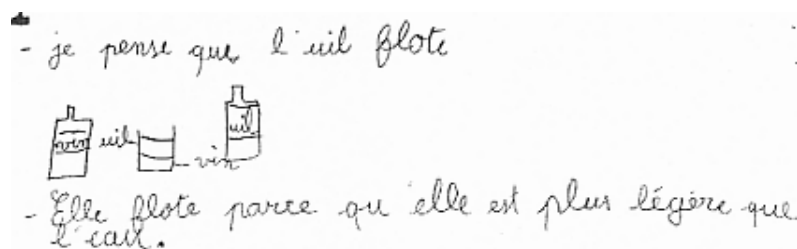 - je pense que l'uil flote
vin uil uil
vin
- Elle flote parce qu'elle est plus légère que
l'eau.